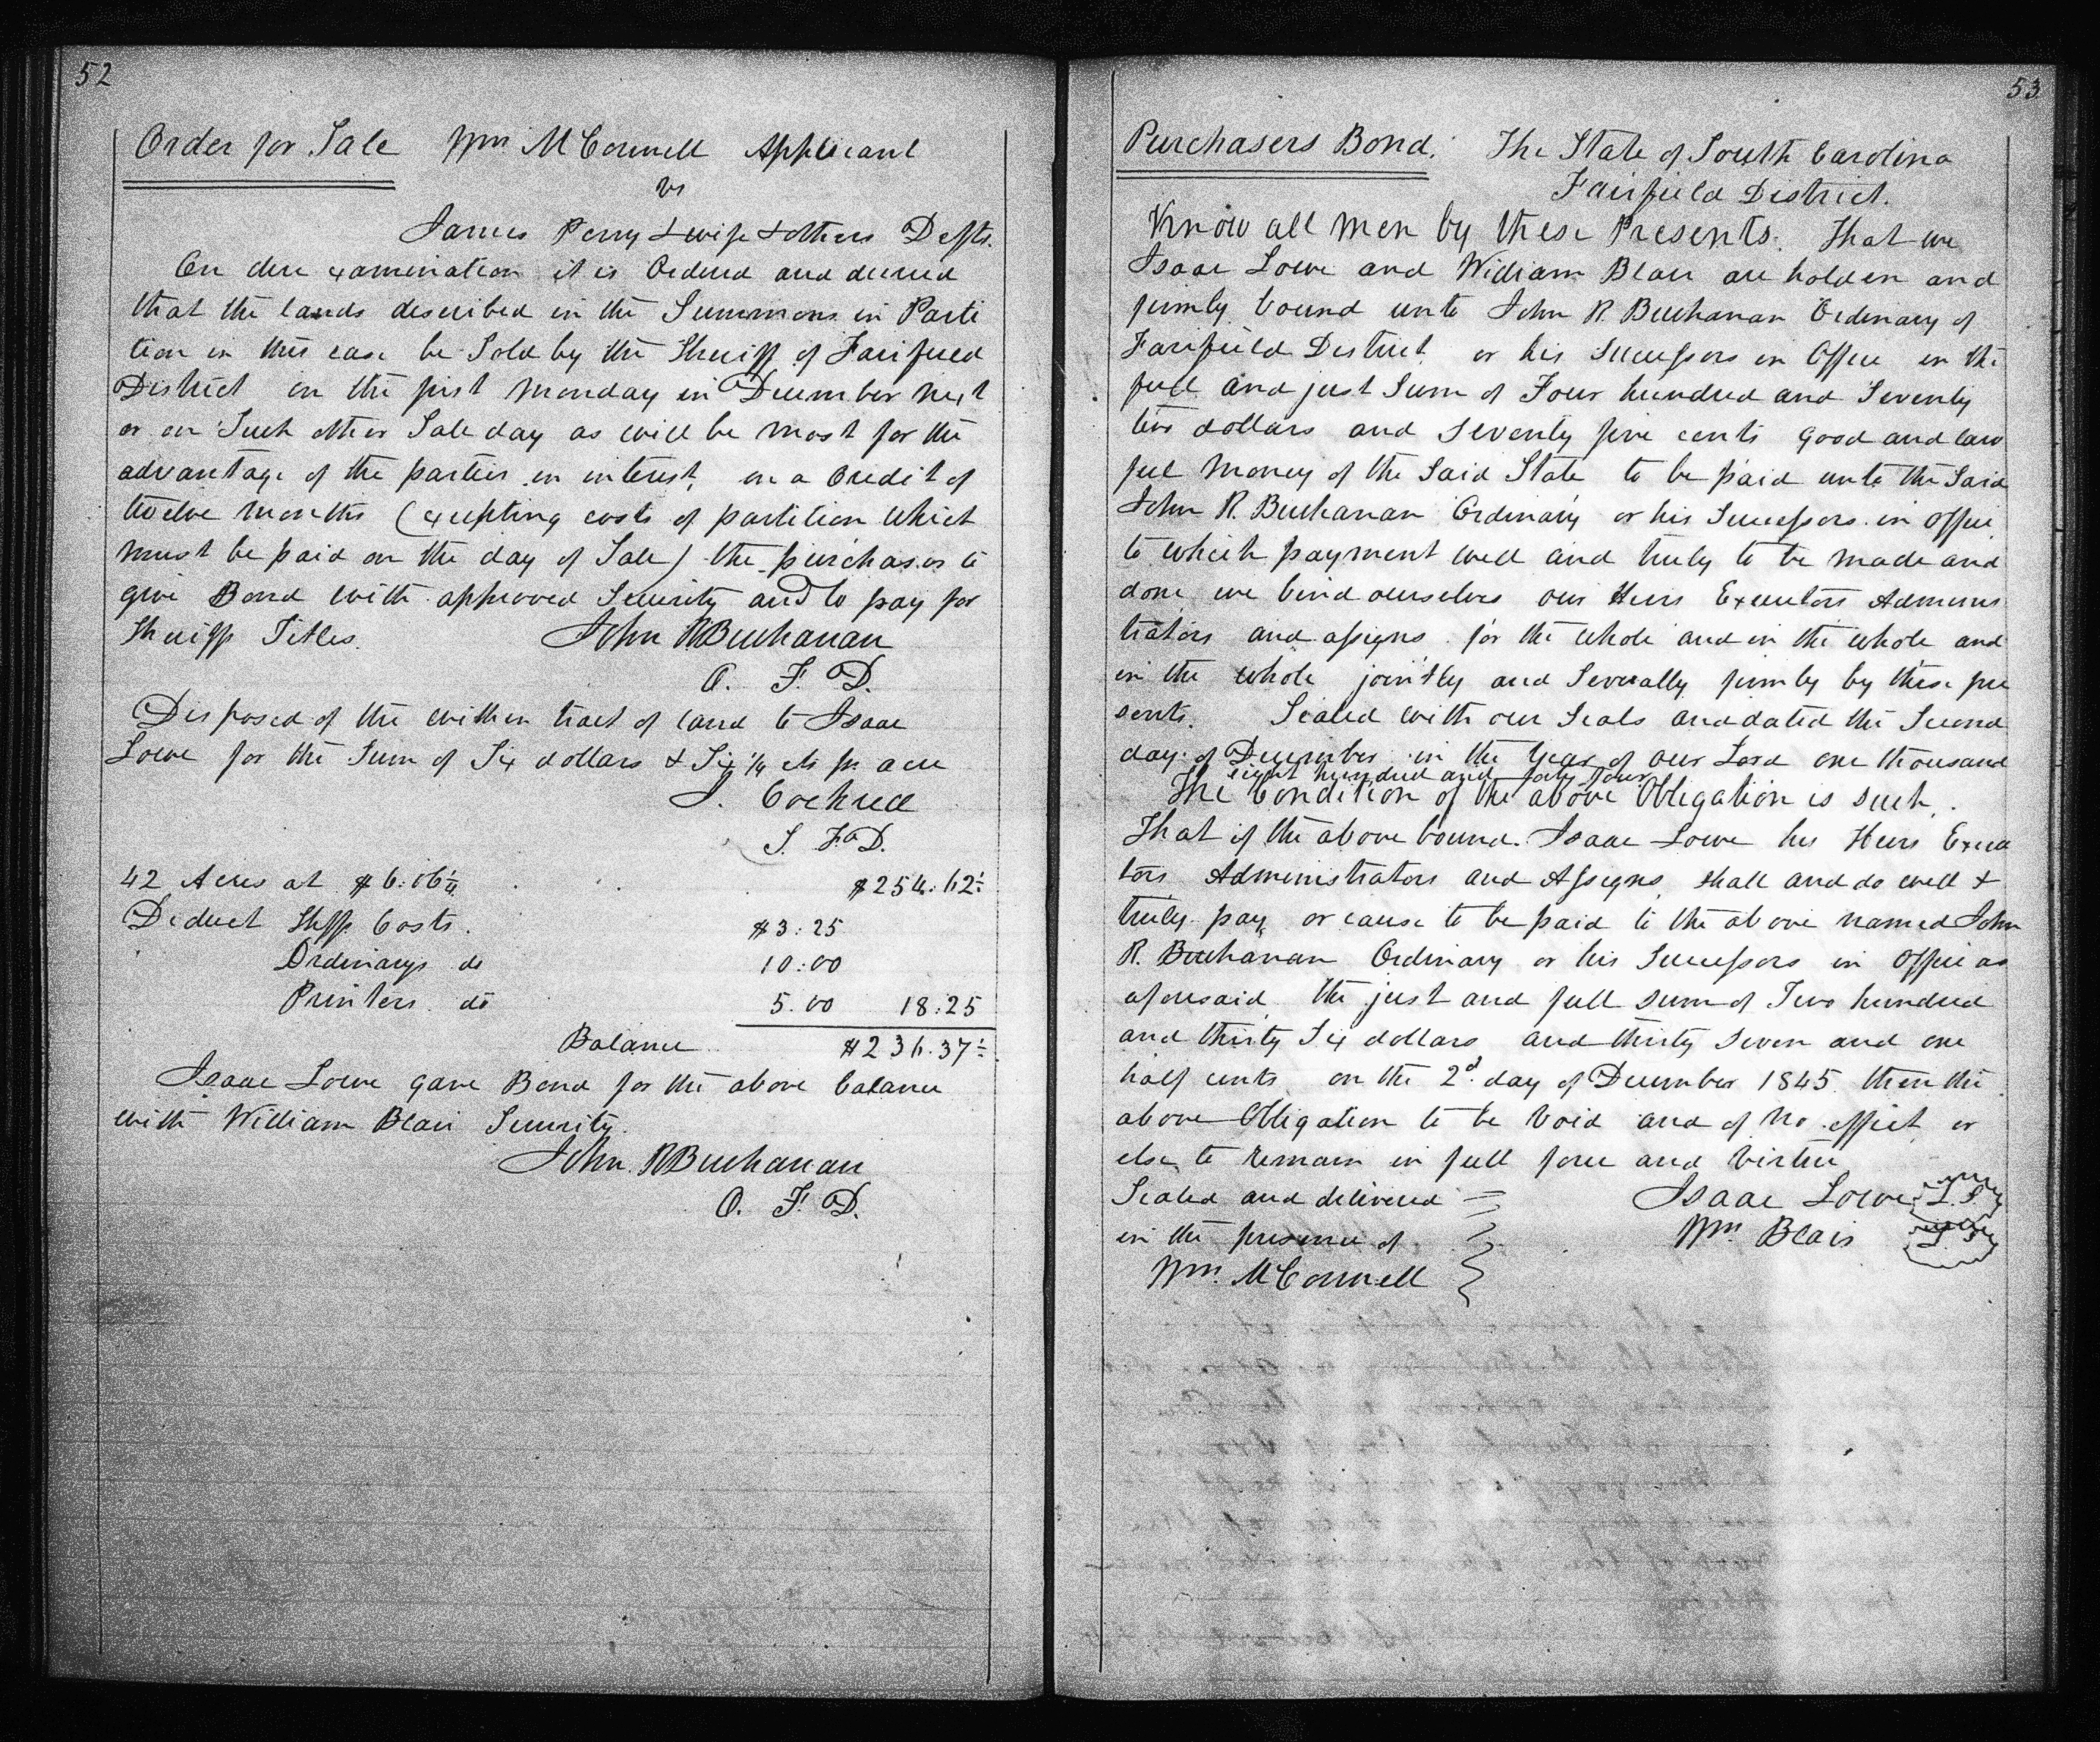 52
Order for Sale Wm McConnell Applicant
vs
James Perry & wife & others Defts.
On due examination it is Ordered and decreed
that the lands described in the Summons in Parti
tion in this case be Sold by the Sheriff of Fairfield
District on the first Monday in December next
or on Such other Sale day as will be most for the
advantage of the parties in interest, on a Credit of
twelve months (excepting costs of partition which
must be paid on the day of Sale) the purchaser to
give Bond with approved Security and to pay for
Sheriff Titles. John R Buchanan
O. F. D.
Disposed of the within tract of land to Isaac
Lowe for the Sum of Six dollars & Six ¼ cts pr acre
J. Cockrell
S. F. D.
42 Acres at $6.06¼ $254.62½
Deduct Shffs Costs. $3.25
Ordinarys do 10.00
Printers do 5.00 18.25
Balance $236.37½
Isaac Lowe gave Bond for the above balance
with William Blair Security.
John R Buchanan
O. F. D.
53
Purchasers Bond. The State of South Carolina
Fairfield District.
Know all men by these Presents. That we
Isaac Lowe and William Blair are holden and
firmly bound unto John R. Buchanan Ordinary of
Fairfield District or his Successors in Office in the
full and just Sum of Four hundred and Seventy
two dollars and Seventy five cents good and law
ful money of the Said State to be paid unto the Said
John R. Buchanan Ordinary or his Successors in office
to which payment well and truly to be made and
done we bind ourselves our Heirs Executors Adminis
trators and assigns for the whole and in the whole and
in the whole jointly and Severally firmly by these pre
sents. Sealed with our Seals and dated the Second
day of December in the Year of our Lord one thousand
eight hundred and forty four
The Condition of the above Obligation is such.
That if the above bound Isaac Lowe his Heirs Execu
tors Administrators and Assigns shall and do well &
truly pay or cause to be paid to the above named John
R. Buchanan Ordinary or his Successors in office as
aforesaid the just and full sum of Two hundred
and thirty Six dollars and thirty Seven and one
half cents on the 2d day of December 1845 then the
above Obligation to be Void and of no effect or
else to remain in full force and Virtue
Sealed and delivered Isaac Lowe L.S
in the presence of Wm. Blair L.S
Wm. McConnell